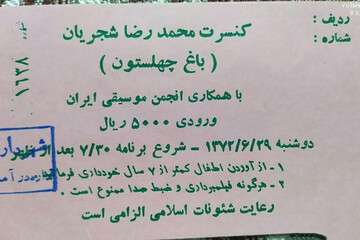 ردیف :
شماره :
کنسرت محمد رضا شجریان
( باغ چهلستون )
با همکاری انجمن موسیقی ایران
ورودی ۵۰۰۰ ریال
دوشنبه ۱۳۷۲/۶/۲۹ – شروع برنامه ۷/۳۰ بعد از ظهر
۱ – از آوردن اطفال کمتر از ۷ سال خودداری
۲ – هرگونه فیلمبرداری و ضبط صدا ممنوع است .
رعایت شئونات اسلامی الزامی است
۱۶۳۸